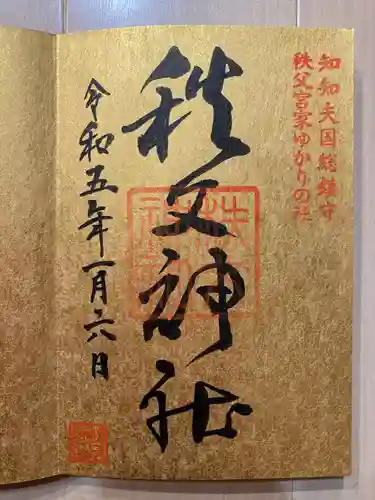 知知夫国総鎮守
秩父宮家ゆかりの社
秩父神社
令和五年一月六日